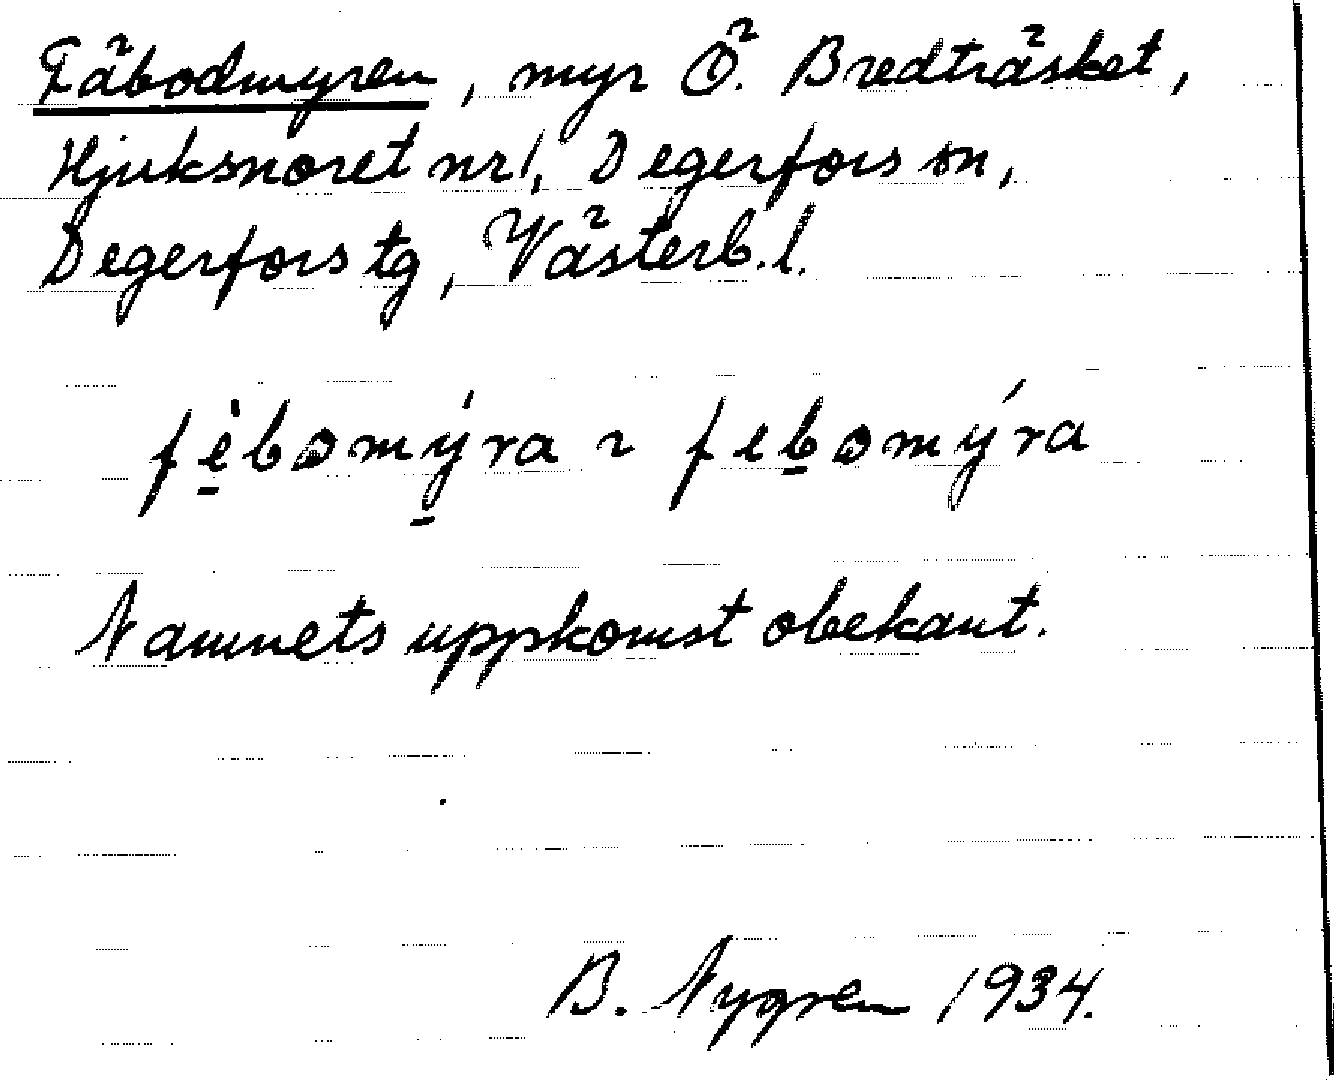 Fäbodmyren, myr Ö. Bredträsket,
Hjuksnoret nr 1, Degerfors sn,
Degerfors tg, Västerb. l.
fèbomýra ~ febomýra
Namnets uppkomst obekant.
B. Nygren 1934.